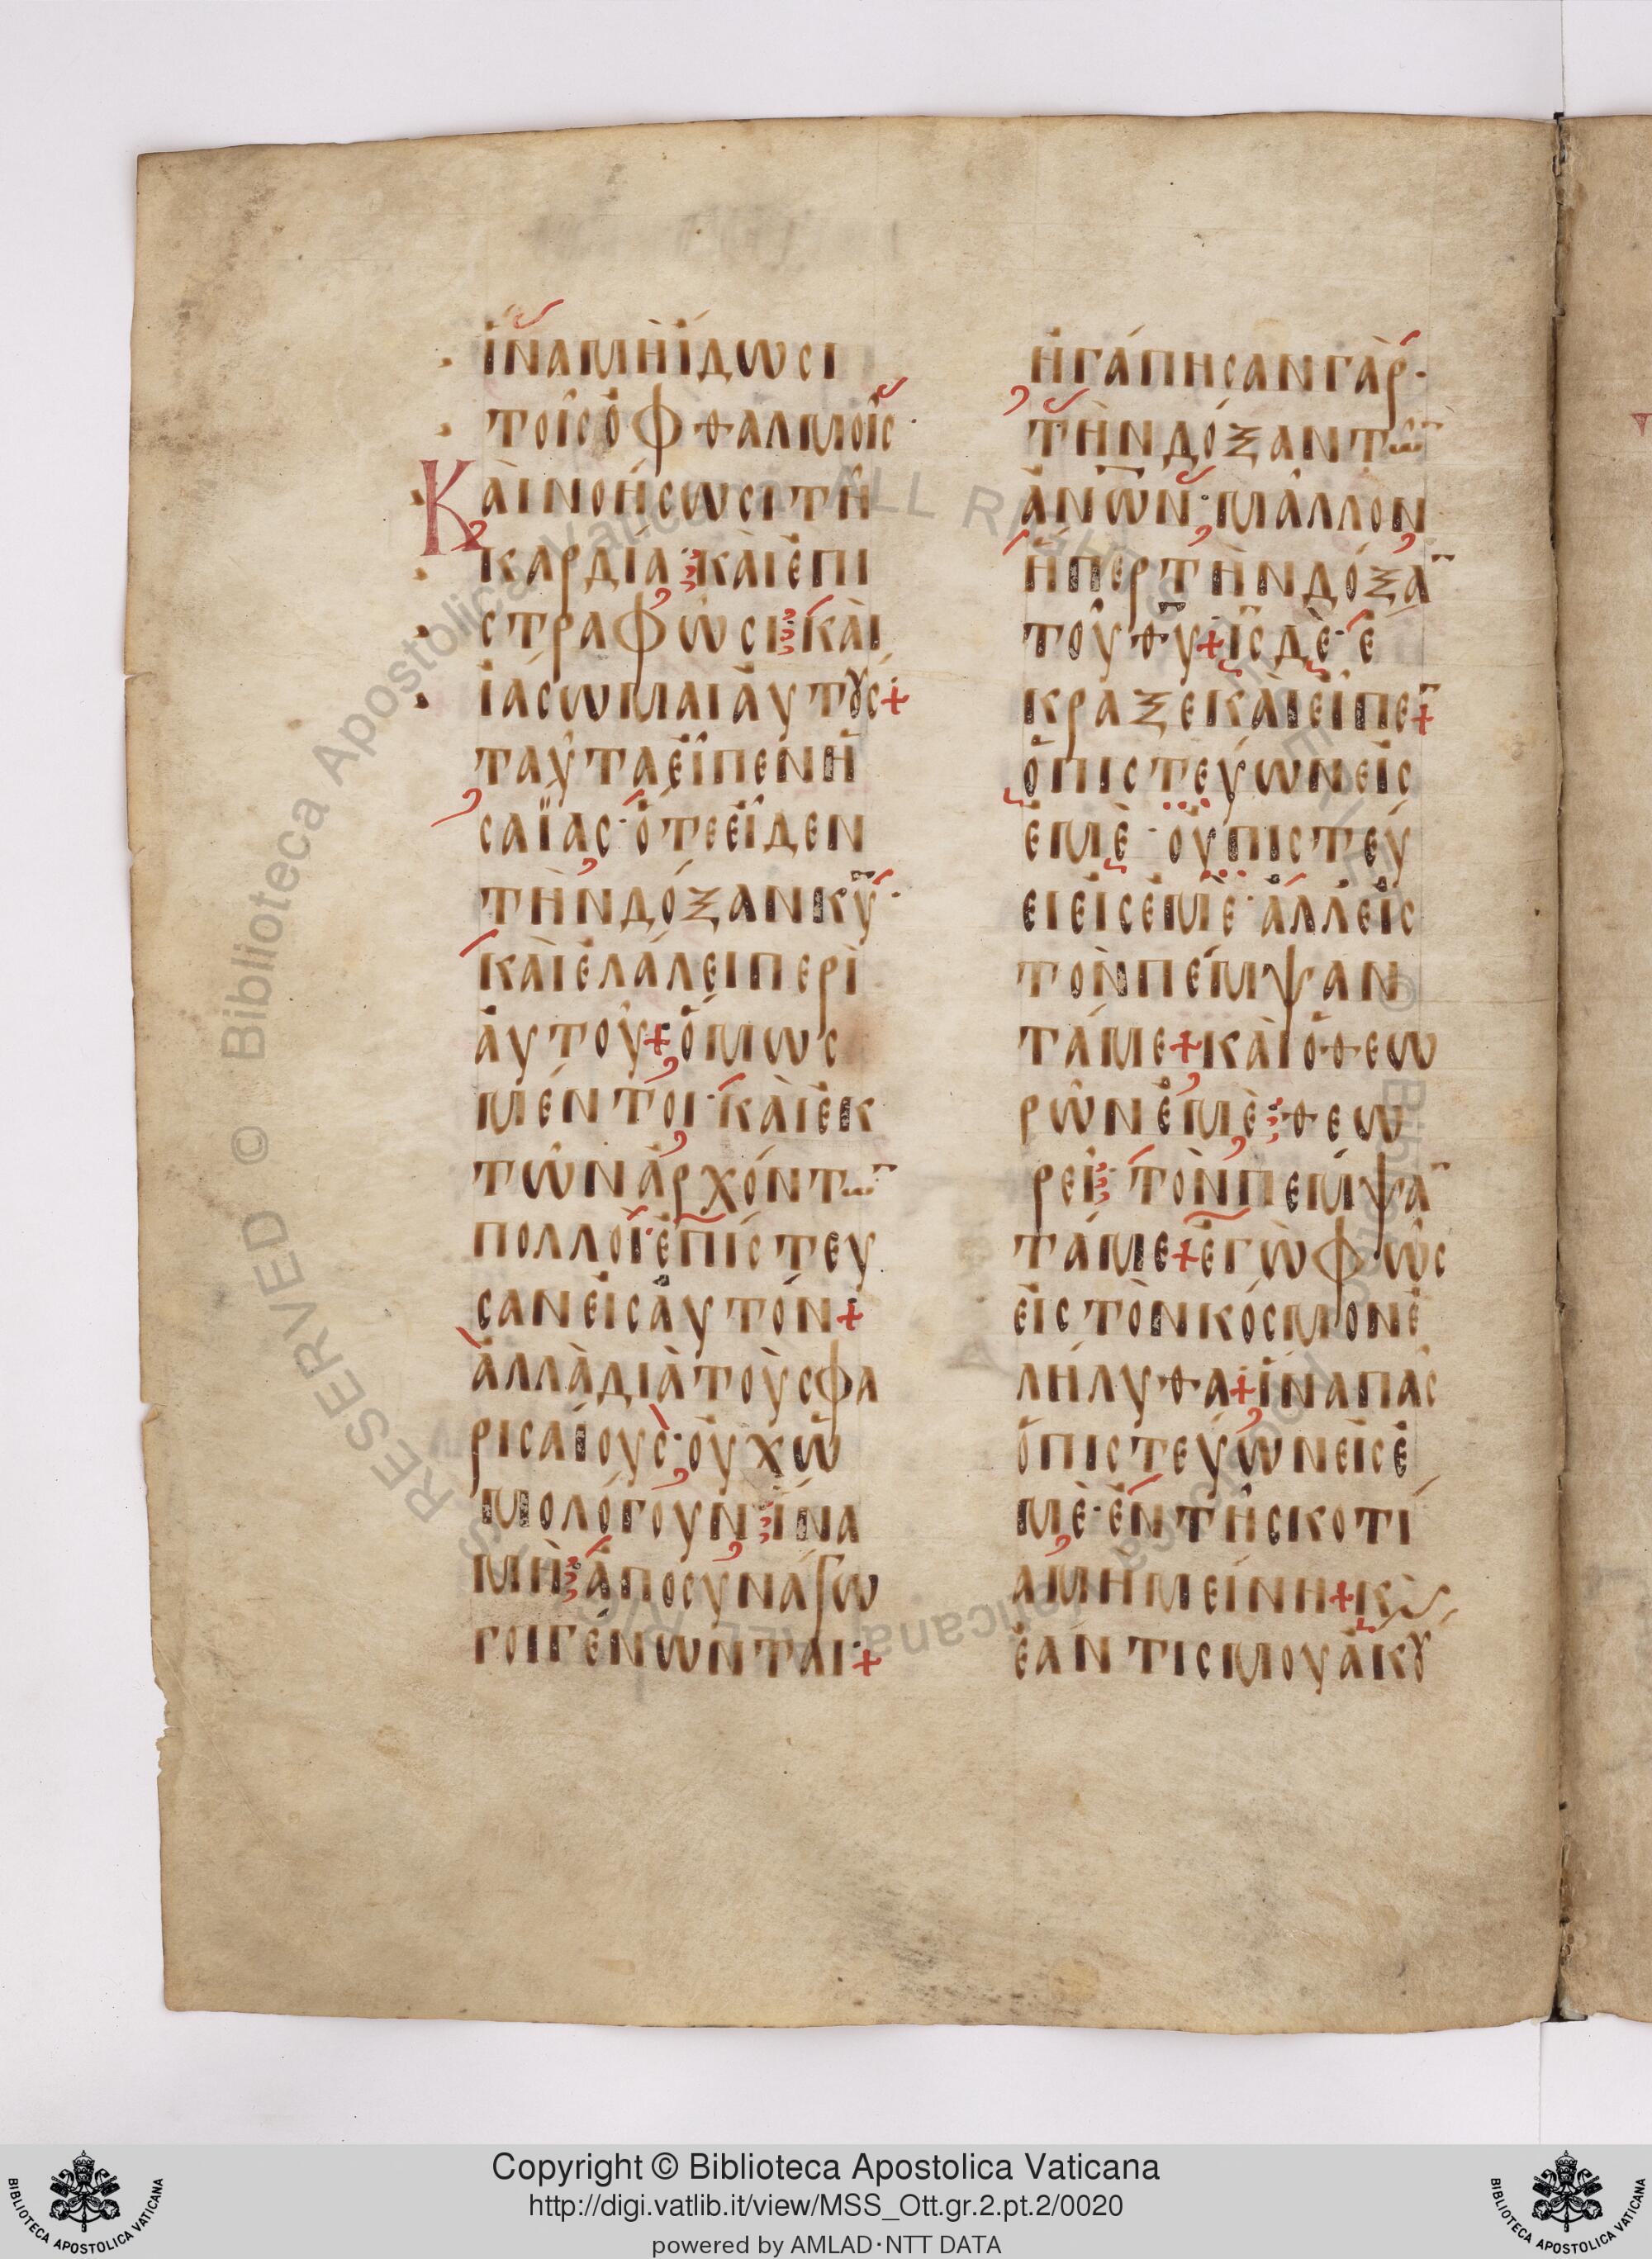 ἵνα μὴ ἴδωσι
τοῖς ὀφθαλμοῖς·
Καὶ νοήσωσι τῆ
καρδία· καὶ ἐπι
στραφῶσι· καὶ
ἰάσωμαι αὐτούς +
ταῦτα εἶπεν ἠ
σαΐας· ὅτε εἶδεν
τὴν δόξαν κ̅υ̅·
καὶ ἐλάλει περὶ
αὐτοῦ + ὅμως
μέντοι· καὶ ἐκ
τῶν ἀρχόντω̅
πολλοὶ· ἐπίστευ
σαν εἰς αὐτόν +
ἀλλὰ διὰ τοὺς φα
ρισαίους· οὐχ ὡ
μολόγουν· ἵνα
μὴ· ἀποσυνάγω
γοι γένωνται· +
ἠγάπησαν γὰρ·
τὴν δόξαν τω̅
α̅ν̅ω̅ν̅· μᾶλλον
ἤπερ τὴν δόξα̅
τοῦ θ̅υ̅ + ι̅ς̅ δὲ· ἔ
κραξε καὶ εἶπε̅ +
ὁ πιστεύων εἰς
ἐμὲ· οὐ πιστεύ
ει εἰς ἐμὲ· ἀλλ εἰς
τὸν πέμψαν
τά με + καὶ ὁ θεω
ρῶν ἐμὲ· θεω
ρεῖ· τὸν πέμψα̅
τά με + ἐγὼ φῶς
εἰς τὸν κόσμον ἐ
λήλυθα + ἵνα πᾶς
ὁ πιστεύων εἰς ἐ
μὲ· ἐν τῆ σκοτί
α μὴ μείνη + κὶ
ἐάν τις μου ἀκού
Copyright © Biblioteca Apostolica Vaticana
http://digi.vatlib.it/view/MSS_Ott.gr.2.pt.2/0020
powered by AMLAD·NTT DATA
BIBLIOTECA APOSTOLICA VATICANA
BIBLIOTECA APOSTOLICA VATICANA
© Biblioteca Apostolica Vaticana ALL RIGHTS RESERVED